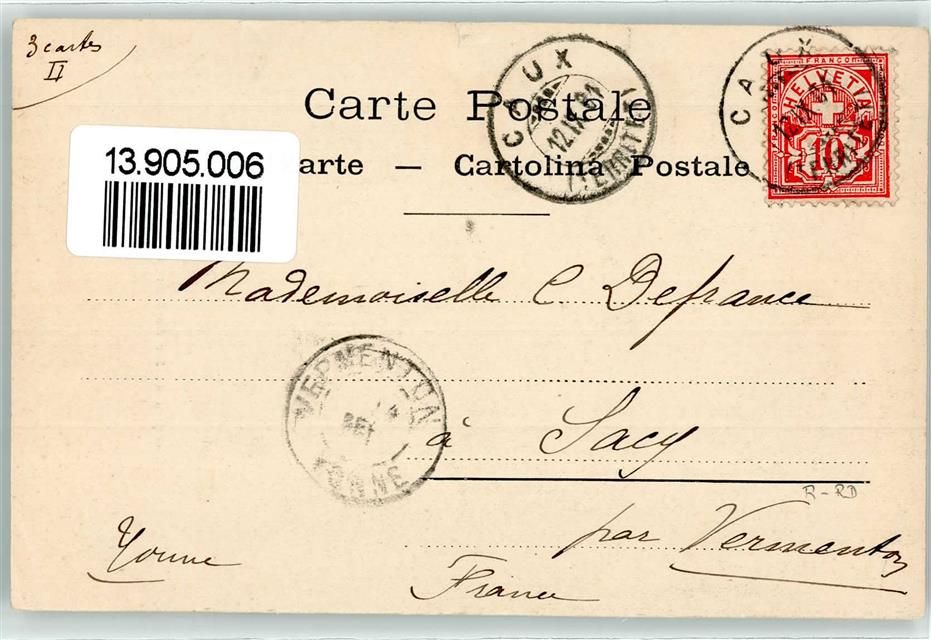 3 cartes
II
Carte Postale
13.905.006
arte — Cartolina Postale
CAUX
12.IX.
(TERRITET)
CAUX
12.IX.
FRANCO
HELVETIA
10
Mademoiselle C Defrance
VERMENTON
YONNE
à Sacy
R-RD
par Vermenton
Yonne
France